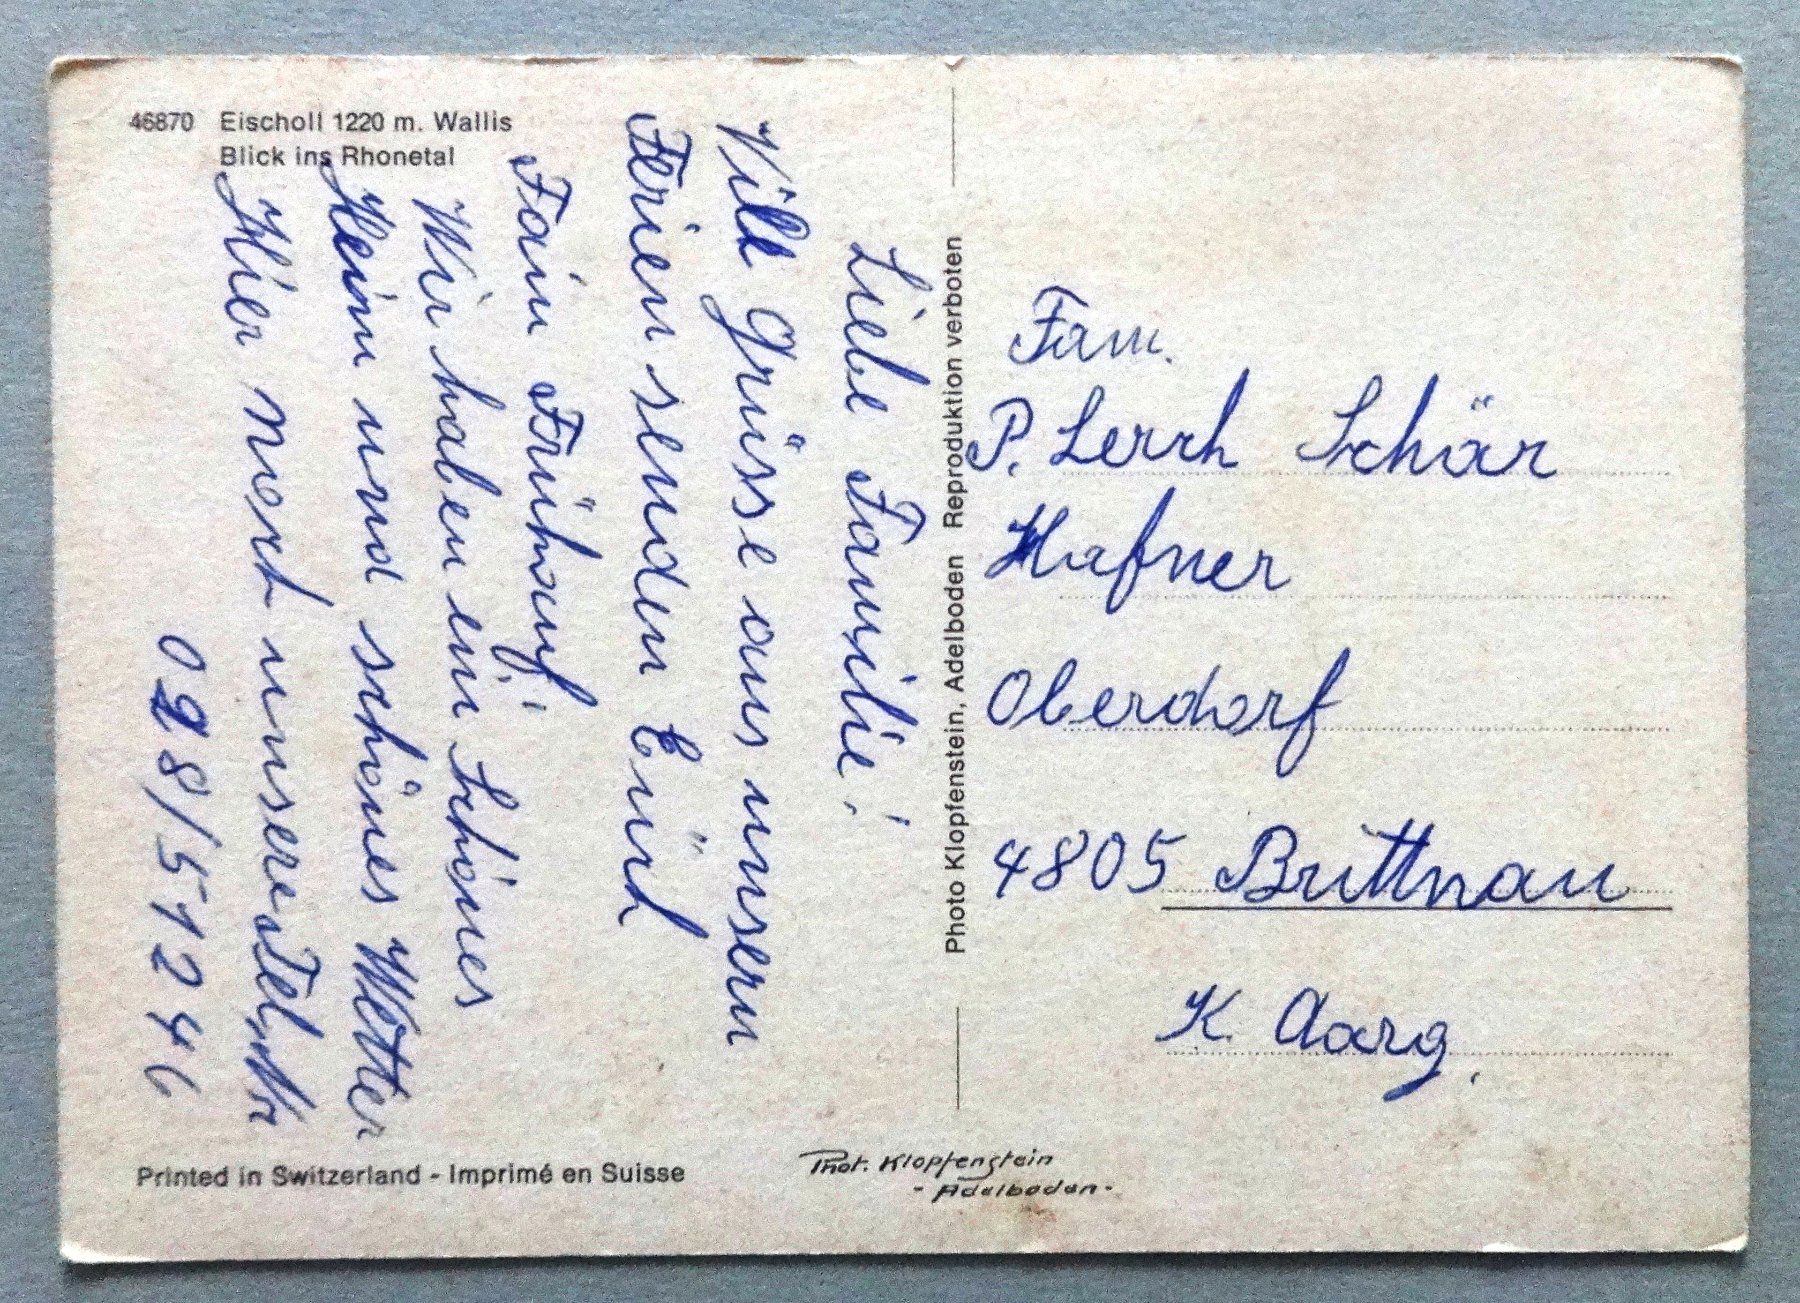 46870 Eischoll 1220 m. Wallis
Blick ins Rhonetal
Liebe Familie!
Vile Grüsse aus unsern
Ferien senden Euch
Fam Frühauf!
Wir haben ein Schönes
Heim und schönes Wetter
Hier noch unsere Tel. Nr
028/51246
Printed in Switzerland - Imprimé en Suisse
Photo Klopfenstein, Adelboden Reproduktion verboten
Phot. Klopfenstein
- Adelboden -
Fam.
P. Lerch Schär
Hafner
Oberdorf
4805 Brittnau
K. Aarg.